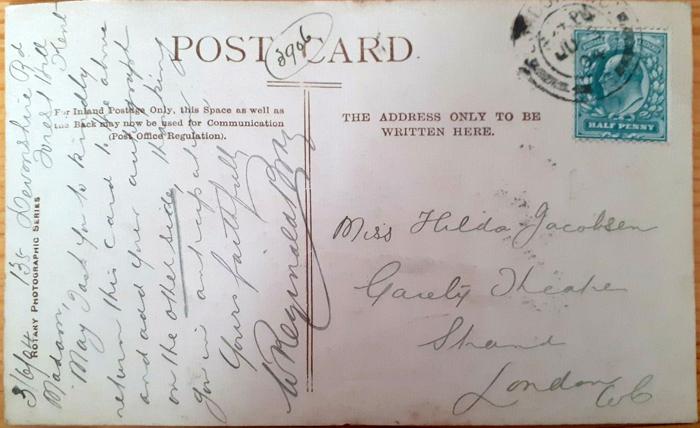 POST CARD
3906
For Inland Postage Only, this Space as well as
the Back may now be used for Communication
(Post Office Regulation).
THE ADDRESS ONLY TO BE
WRITTEN HERE.
HALF PENNY
ROTARY PHOTOGRAPHIC SERIES
3/6/04 135 Devonshire Rd
Forest Hill
Kent
Madam,
May I ask you to kindly
return this card to the above
and add your autograph
on the other side, thanking
you in anticipation
Yours faithfully
W Reginald Bray
Miss Hilda Jacobsen
Gaiety Theatre
Strand
London WC